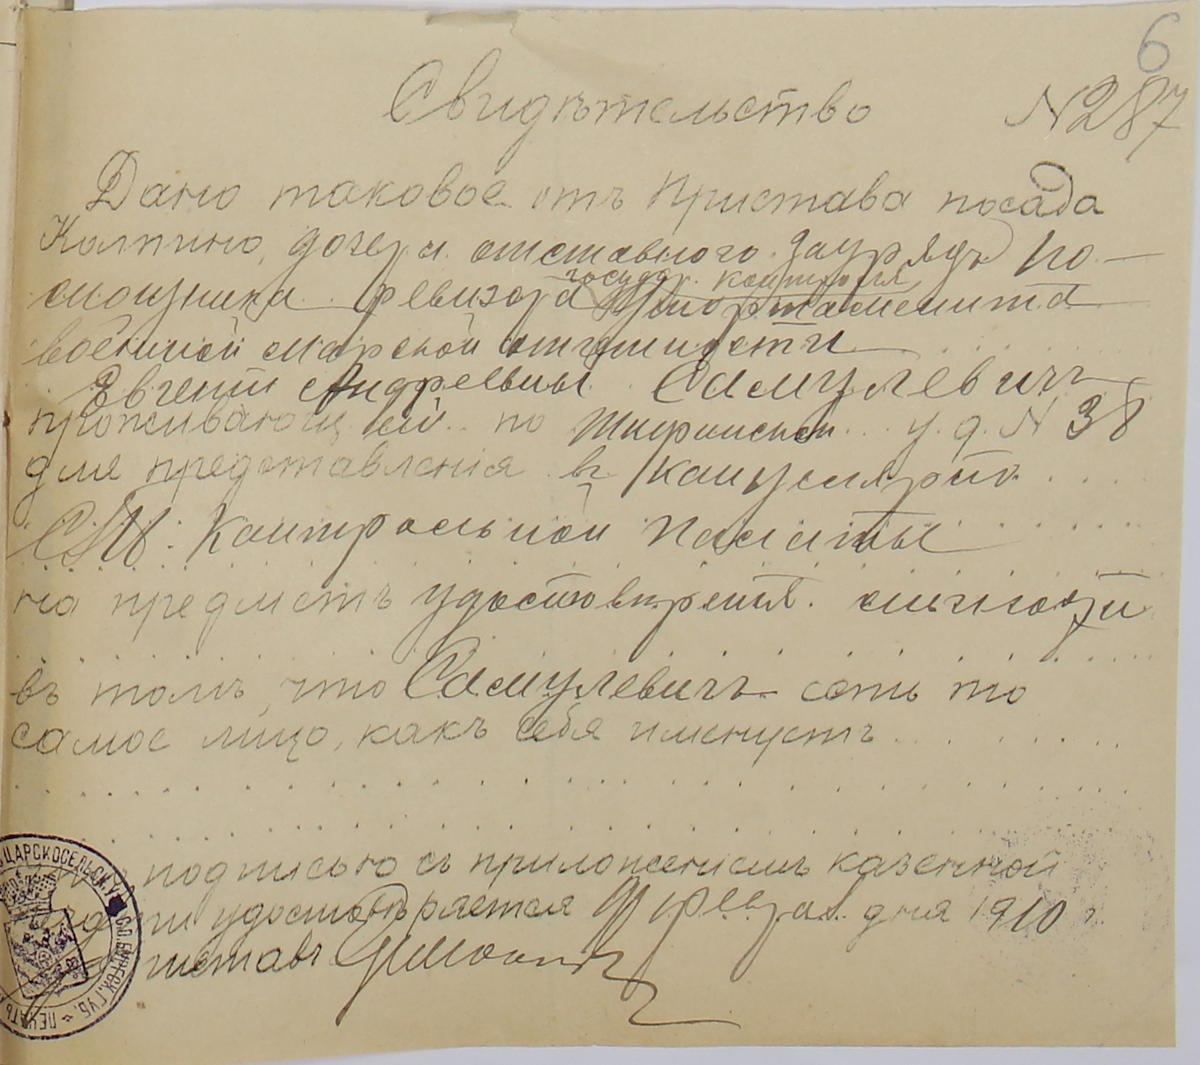 6
Свидѣтельство №287
Дано таковое отъ Пристава посада
Колпино, дочери отставного зауряд По-
мощника ревизора государ. контроля Департамента
военной морской отчетности
Евгеніи Андреевны Самулевичъ
проживающей по у. д. № 38
для представленія въ Канцелярію
СПб. Контрольной Палаты
на предметъ удостовѣренія личности
въ томъ, что Самулевичъ есть то
самое лицо, какъ себя именуетъ
подписью съ приложеніемъ казенной
печати удостовѣряется Февраля дня 1910 г.
Приставъ
ЦАРСКОСЕЛЬСК. У. С.П.БУРГСК. ГУБ. ПЕЧАТЬ